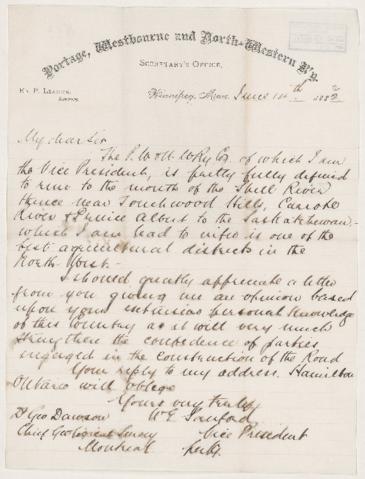 Portage, Westbourne and North-Western Ry.
Secretary's Office,
Winnipeg, Man. June 10th 1882
My dear Sir
The P.W & N.W Ry Co. of which I am
the Vice President, is partly fully defined
to run to the mouth of the Shell River
thence near Touchwood Hills, Carrot
River & Prince Albert to the Saskatchewan -
which I am lead to infer is one of the
best agricultural districts in the
North West. -
I should greatly appreciate a letter
from you giving me an opinion based
upon your extensive personal knowledge
of this Country as it will very much
strengthen the confidence of parties
engaged in the construction of the Road
Your reply to my address. Hamilton
Ontario will oblige
Yours very truly
Dr Geo Dawson W E Sanford
Chief Geological Survey Vice President
Montreal